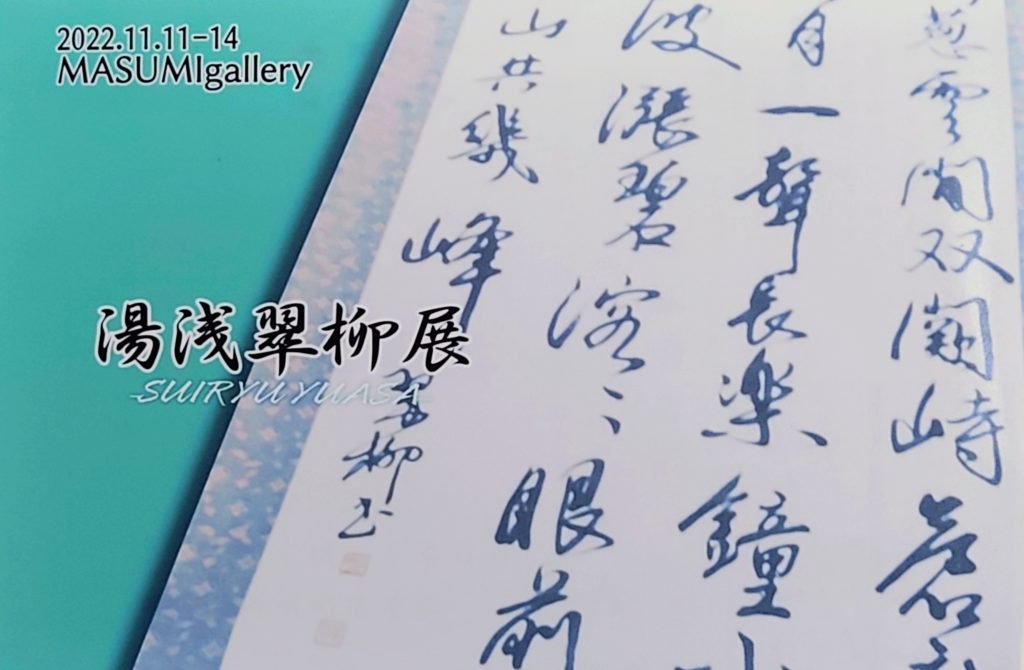 2022.11.11-14
MASUMIgallery
湯浅翠柳展
SUIRYU YUASA
雲開双闕峙蒼
月一聲長楽鐘
波漲碧溶〻眼前
山共幾峰
翠柳书